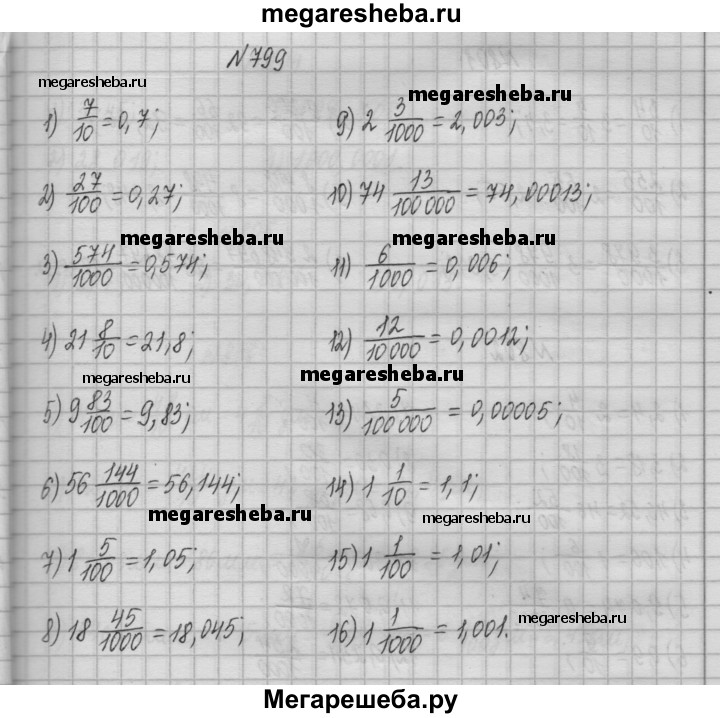 megaresheba.ru
N 799
megaresheba.ru
1) 7/10 = 0,7;
2) 27/100 = 0,27;
megaresheba.ru
3) 574/1000 = 0,574;
4) 21 8/10 = 21,8;
megaresheba.ru
5) 9 83/100 = 9,83;
6) 56 144/1000 = 56,144;
megaresheba.ru
7) 1 5/100 = 1,05;
8) 18 45/1000 = 18,045;
megaresheba.ru
9) 2 3/1000 = 2,003;
10) 74 13/100 000 = 74,00013;
megaresheba.ru
11) 6/1000 = 0,006;
12) 12/10 000 = 0,0012;
megaresheba.ru
13) 5/100 000 = 0,00005;
14) 1 1/10 = 1,1;
megaresheba.ru
15) 1 1/100 = 1,01;
16) 1 1/1000 = 1,001.
megaresheba.ru
Мегарешеба.ру